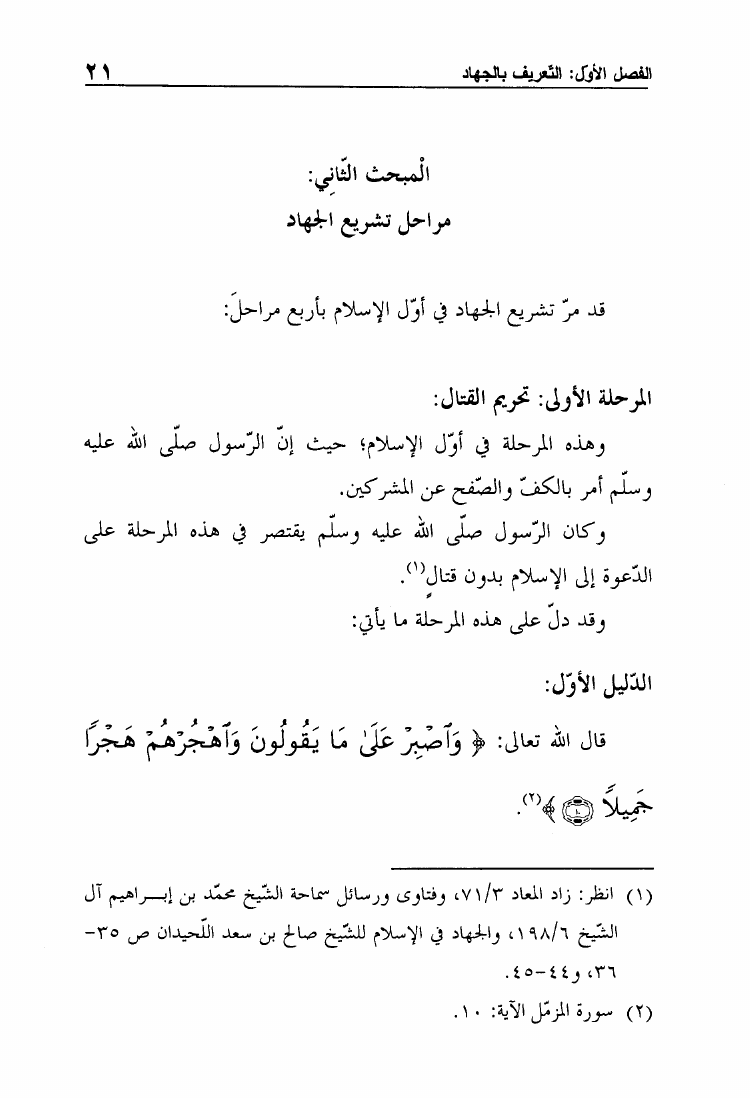 الفصل الأوّل: التّعريف بالجهاد ٢١
الْمبحث الثّانِي:
مراحل تشريع الجهاد
قد مرّ تشريع الجهاد في أوّل الإسلام بأربع مراحلَ:
المرحلة الأولى: تحريم القتال:
وهذه المرحلة في أوّل الإسلام؛ حيث إنّ الرّسول صلّى الله عليه
وسلّم أمر بالكفّ والصّفح عن المشركين.
وكان الرّسول صلّى الله عليه وسلّم يقتصر في هذه المرحلة على
الدّعوة إلى الإسلام بدون قتالٍ(١).
وقد دلّ على هذه المرحلة ما يأتي:
الدّليل الأوّل:
قال الله تعالى: ﴿ وَٱصۡبِرۡ عَلَىٰ مَا يَقُولُونَ وَٱهۡجُرۡهُمۡ هَجۡرًا
جَمِيلًا ۝١٠ ﴾(٢).
(١) انظر: زاد المعاد ٧١/٣، وفتاوى ورسائل سماحة الشّيخ محمّد بن إبـــراهيم آل
الشّيخ ١٩٨/٦، والجهاد في الإسلام للشّيخ صالح بن سعد اللّحيدان ص ٣٥-
٣٦، و٤٤-٤٥.
(٢) سورة المزمّل الآية: ١٠.